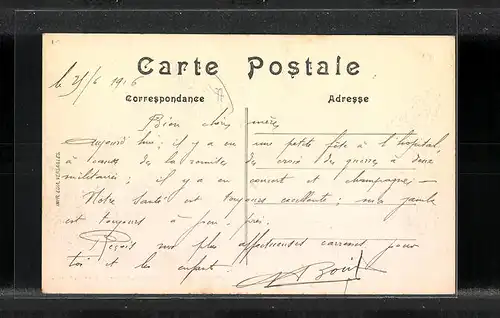 Carte Postale
Correspondance
Adresse
le 25/6 1916
Bien chère mère
Aujourd'hui; il y a eu une petite fête à l'hopital,
à cause de la remise de croix de guerre à deux
militaires; il y a eu concert et champagne -
Notre santé est toujours excellente; ma jambe
est toujours à peu près.
Reçois mes plus affectueuses caresses pour
toi et les enfants.